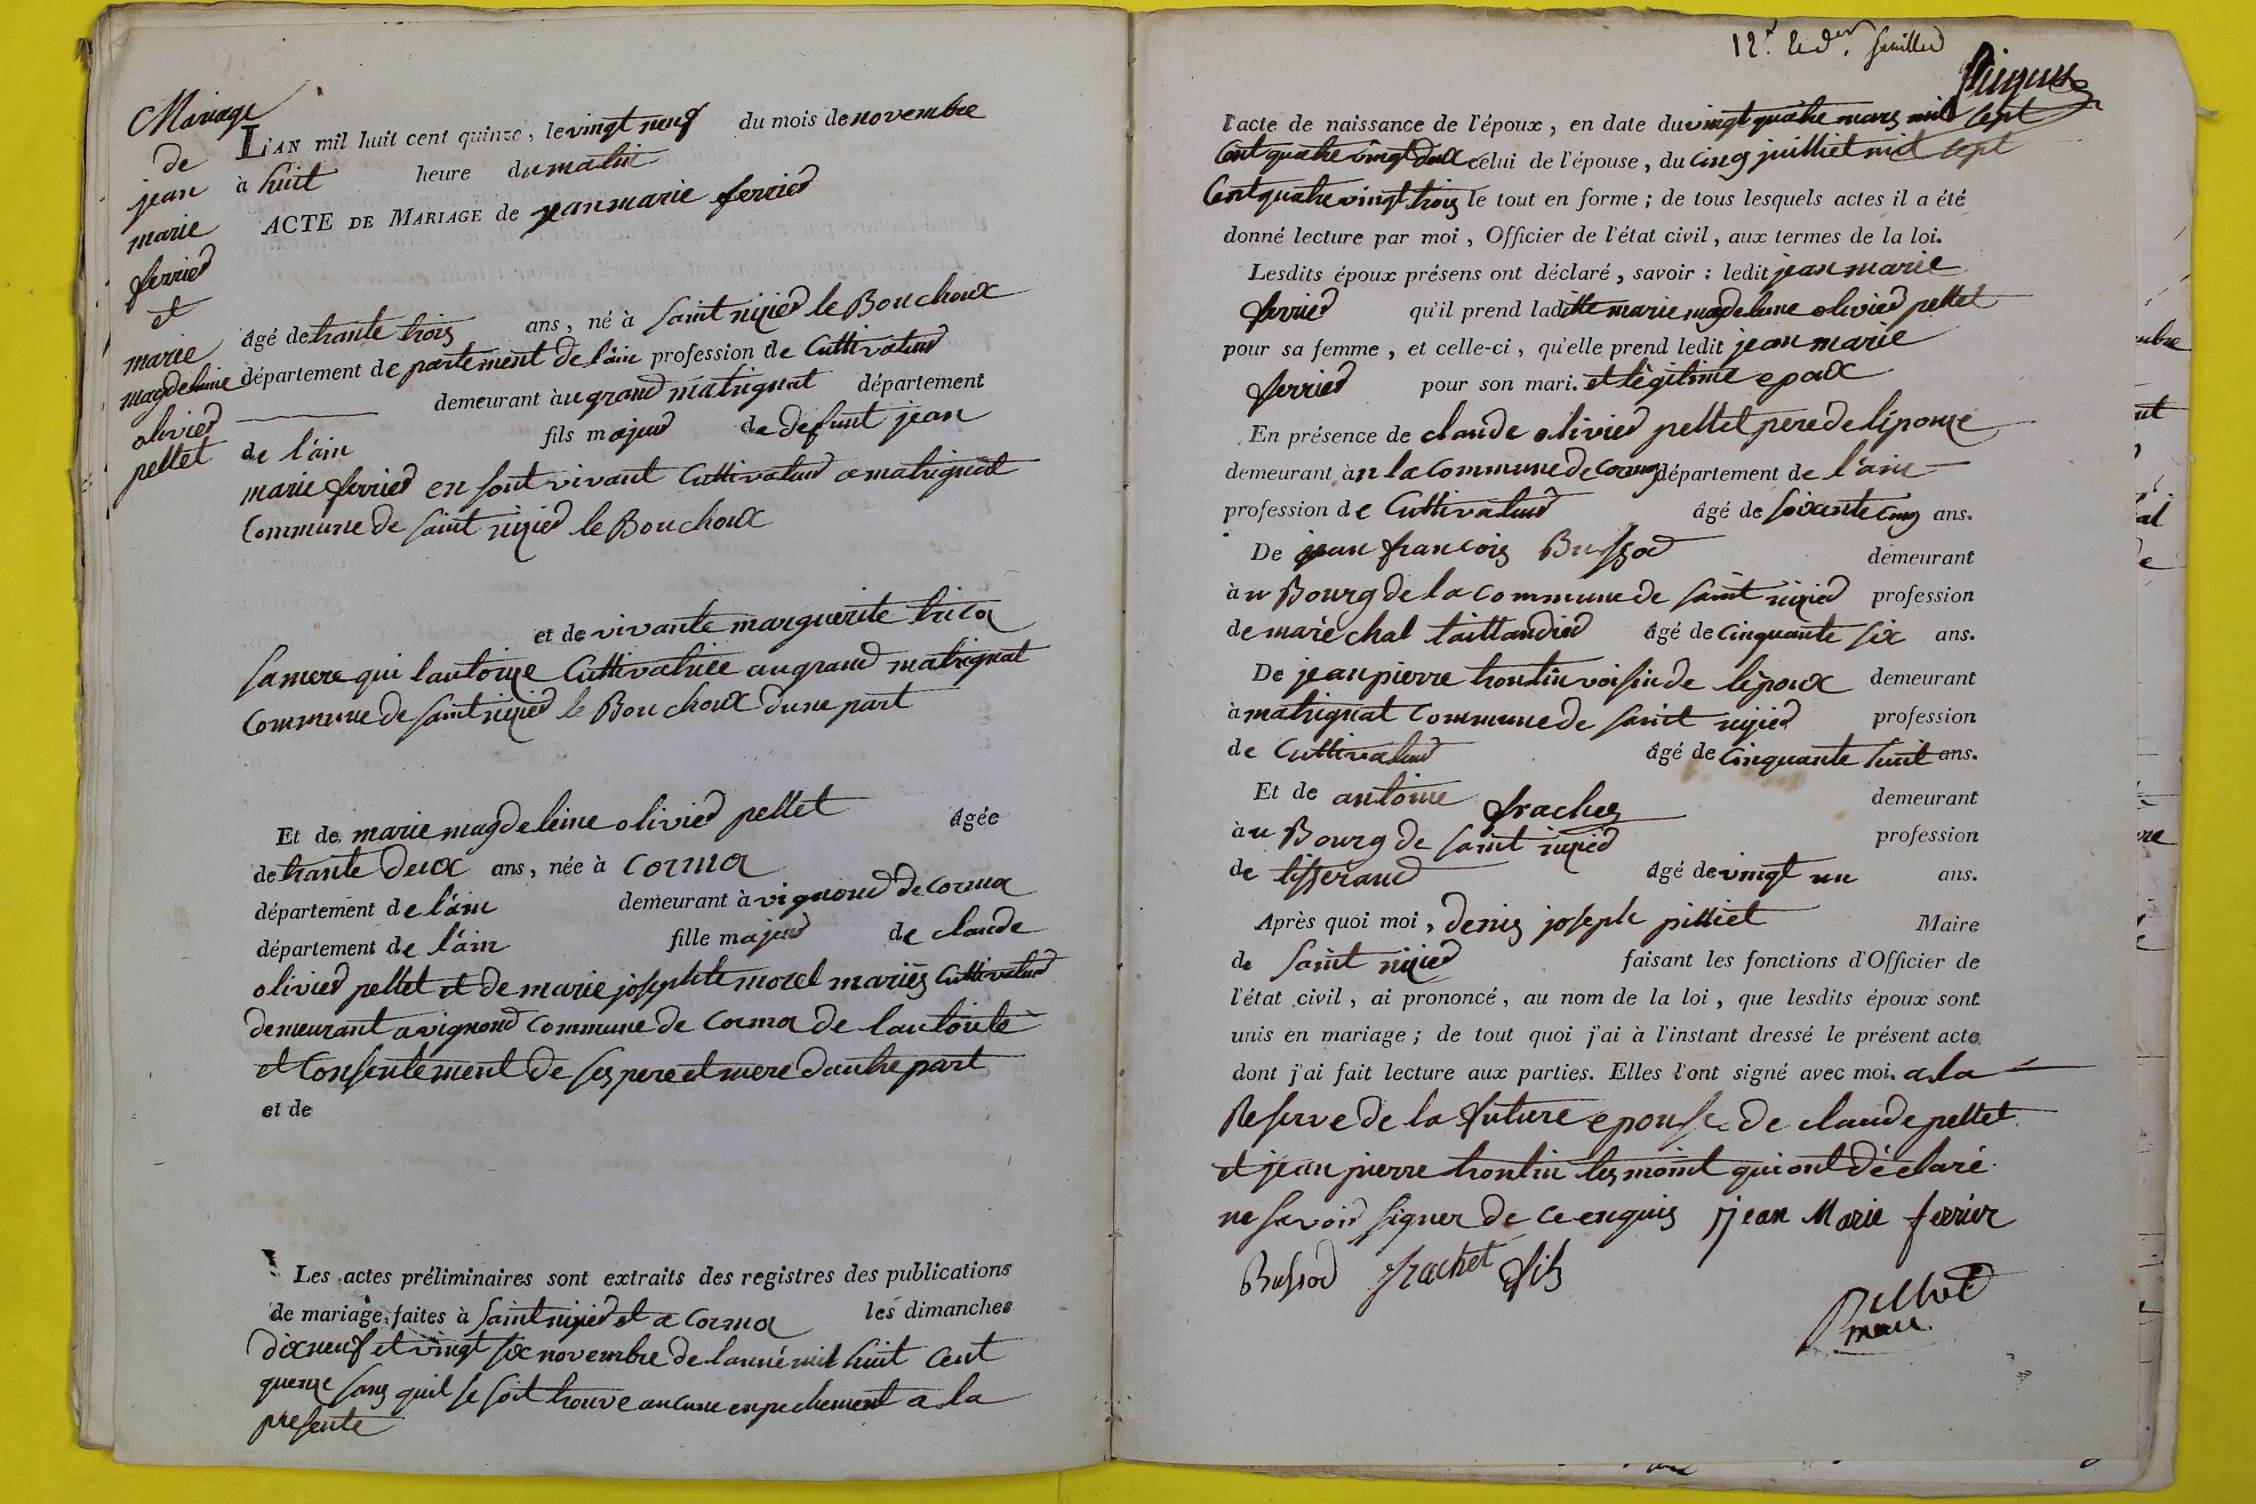 Mariage
de
jean
marie
ferried
et
marie
magdeleine
olivied
pellet
L'AN mil huit cent quinze, le vingt neuf du mois de novembre
à huit heure du matin
ACTE DE MARIAGE de jean marie ferried
âgé de trante trois ans, né à Saint nizied le Bouchoux
département de partement de l'ain profession de Cultivateud
demeurant à u grand matrignat département
de l'ain fils majeud de defunt jean
marie ferried en sont vivant Cultivateud a matrignat
Commune de saint nizied le Bouchoux
et de vivante marguerite trico
sa mere qui lautorize Cultivatrice au grand matrignat
Commune de saint nizied le Bouchoux dune part
Et de marie magdeleine olivied pellet âgée
de trante deux ans, née à Cormo
département de l'ain demeurant à vignond de Cormo
département de l'ain fille majeud de claude
olivied pellet et de marie josephte morel mariés Cultivateud
demeurant a vignond Commune de Cormo de lautorité
et Consentement de ses pere et mere dautre part
et de
Les actes préliminaires sont extraits des registres des publications
de mariage faites à Saint nizied et a Cormo les dimanches
dix neuf et vingt six novembre de lanné mil huit Cent
quenze sans quil se soit trouve aucune enpechement a la
presente
12.e et d.er feuilled
l'acte de naissance de l'époux, en date du vingt quatre mars mil sept
Cent quatre vingt deux celui de l'épouse, du Cinq juilliet mil sept
Cent quatre vingt trois le tout en forme; de tous lesquels actes il a été
donné lecture par moi, Officier de l'état civil, aux termes de la loi.
Lesdits époux présens ont déclaré, savoir : ledit jean marie
ferried qu'il prend laditte marie magdeleine olivied pellet
pour sa femme, et celle-ci, qu'elle prend ledit jean marie
ferried pour son mari. et légitime epoux
En présence de claude olivied pellet pere de l'épouze
demeurant à n la Commune de Cormo département de l'ain
profession de Cultivateud âgé de soixante Cinq ans.
De jean francois Bussod demeurant
à u Bourg de la Commune de saint nizied profession
de maréchal taillandied âgé de Cinquante six ans.
De jean pierre trontin voisin de lépoux demeurant
à matrignat Commune de saint nizied profession
de Cultivateud âgé de Cinquante huit ans.
Et de antoine frachez demeurant
à u Bourg de saint nizied profession
de tisserand âgé de vingt un ans.
Après quoi moi, denis joseph pilliet Maire
de Saint nizied faisant les fonctions d'Officier de
l'état civil, ai prononcé, au nom de la loi, que lesdits époux sont
unis en mariage; de tout quoi j'ai à l'instant dressé le présent acte
dont j'ai fait lecture aux parties. Elles l'ont signé avec moi. a la
Reserve de la future epouse de claude pellet
et jean pierre trontin tesmoint qui ont déclaré
ne savoid signer de ce enquis jean Marie ferrier
Bussod frachet fils
maire